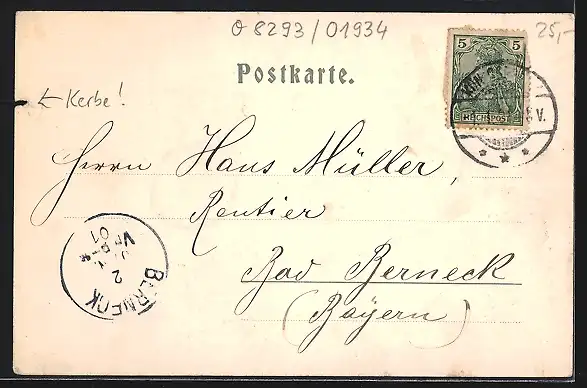 O 8293/01934
25,-
Postkarte.
5 5
REICHSPOST
V.
← Kerbe!
Herrn Hans Müller,
Rentier
Bad Berneck
(Bayern)
BERNECK
2
01